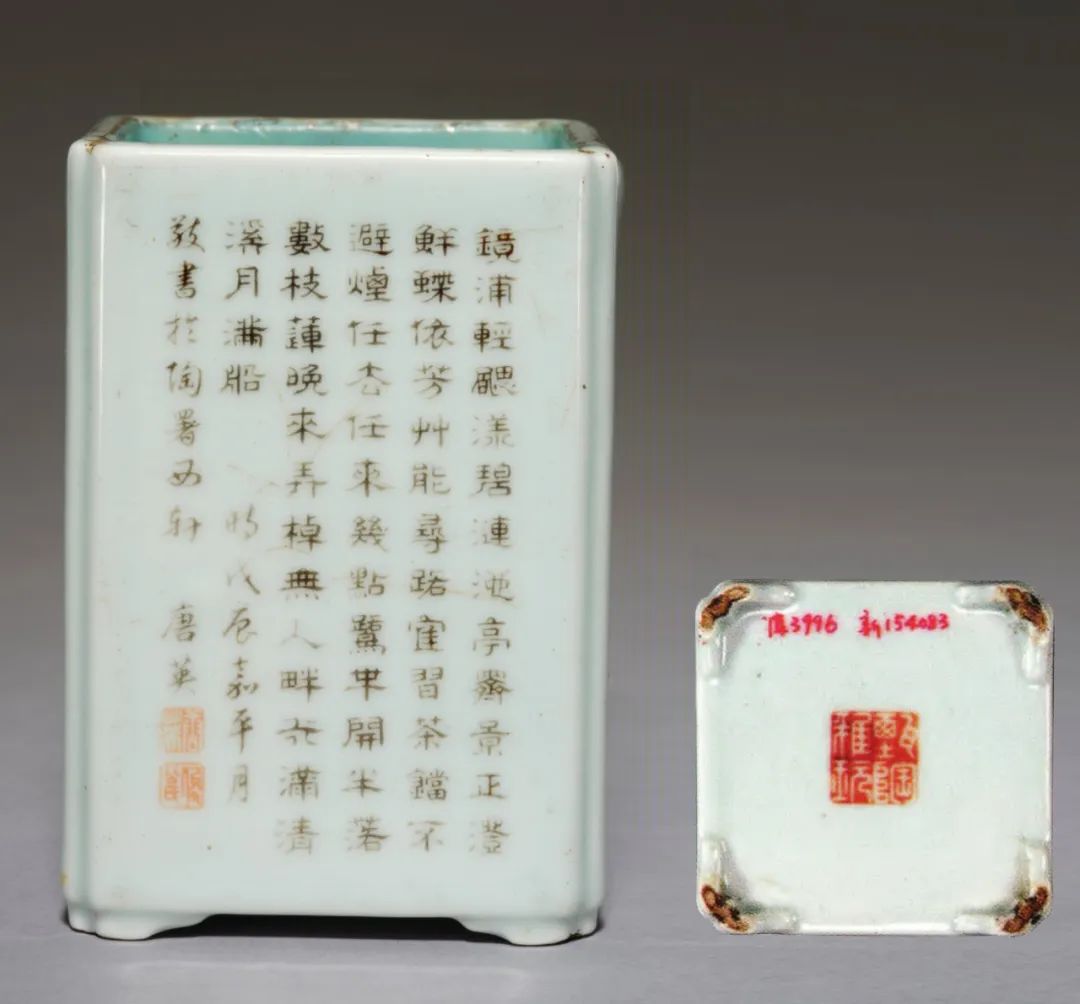 鏡浦輕颸漾碧漣池亭景正澄
鮮蝶依芳艸能尋路寉習茶鐺不
避煙任去任來幾點鷺半開半落
數枝蓮晚來弄棹無人畔花滿清
溪月滿船 時戊辰嘉平月
敬書於陶署西軒 唐英
3996 新154083
甄陶
雅玩